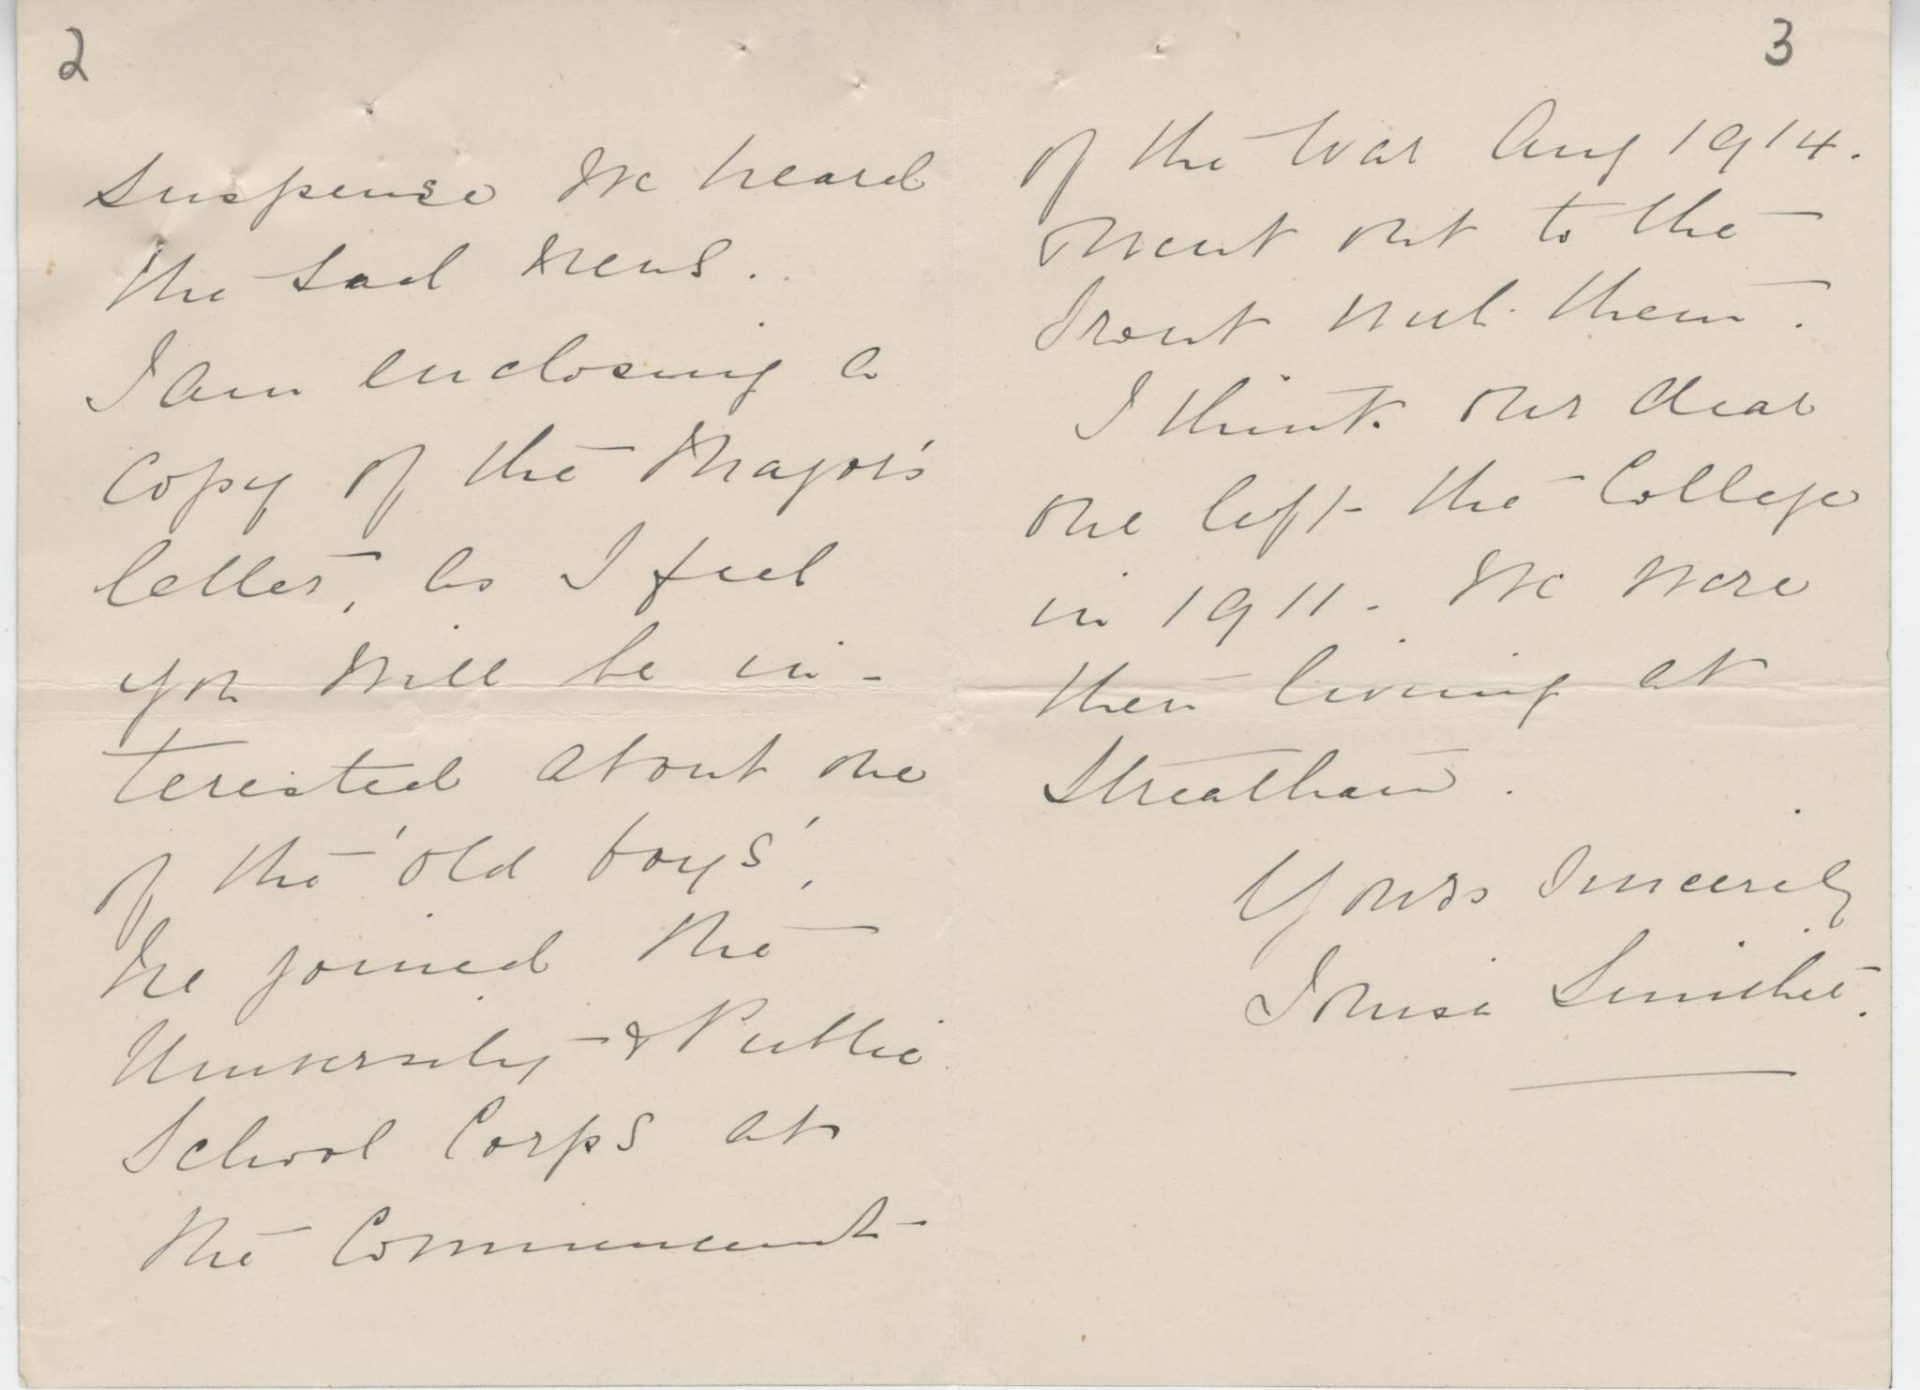 2
suspense we heard
the sad news.
I am enclosing a
copy of the Major's
letter, as I feel
you will be in-
terested about one
of the 'old boys'.
He joined the
University & Public
School Corps at
the Commencement
3
of the War Aug 1914.
went out to the
Front with them.
I think our dear
one left the College
in 1911. We were
then living at
Streatham.
Yours Sincerely
Louisa